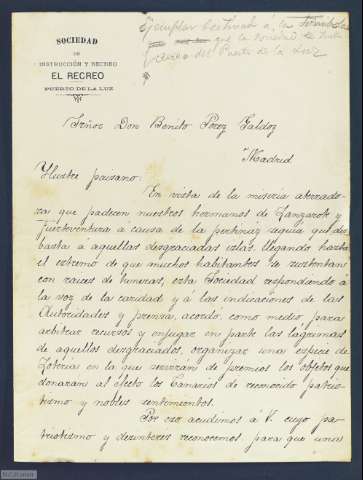 SOCIEDAD
DE
INSTRUCCIÓN Y RECREO
EL RECREO
PUERTO DE LA LUZ
Ejemplar destinado á la
que la Sociedad de
Recreo del Puerto de la Luz
Señor Don Benito Perez Galdoz
Madrid
Ilustre paisano:
En vista de la miseria aterrado-
ra que padecen nuestros hermanos de Lanzarote y
Fuerteventura á causa de la pertinaz sequia que de-
basta á aquellas desgraciadas islas, llegando hasta
el extremo de que muchos habitantes se sustentan
con raices de tuneras, esta Sociedad respondiendo á
la voz de la caridad y á las indicaciones de las
Autoridades y prensa, acordó, como medio para
arbitrar recursos y enjugar en parte las lágrimas
de aquellos desgraciados, organizar una especie de
Lotería en la que servirán de premios los objetos que
donaran al efecto los Canarios de reconocido patrio-
tismo y nobles sentimientos.
Por eso acudimos á V. cuyo pa-
triotismo y desinteres reconocemos, para que unas